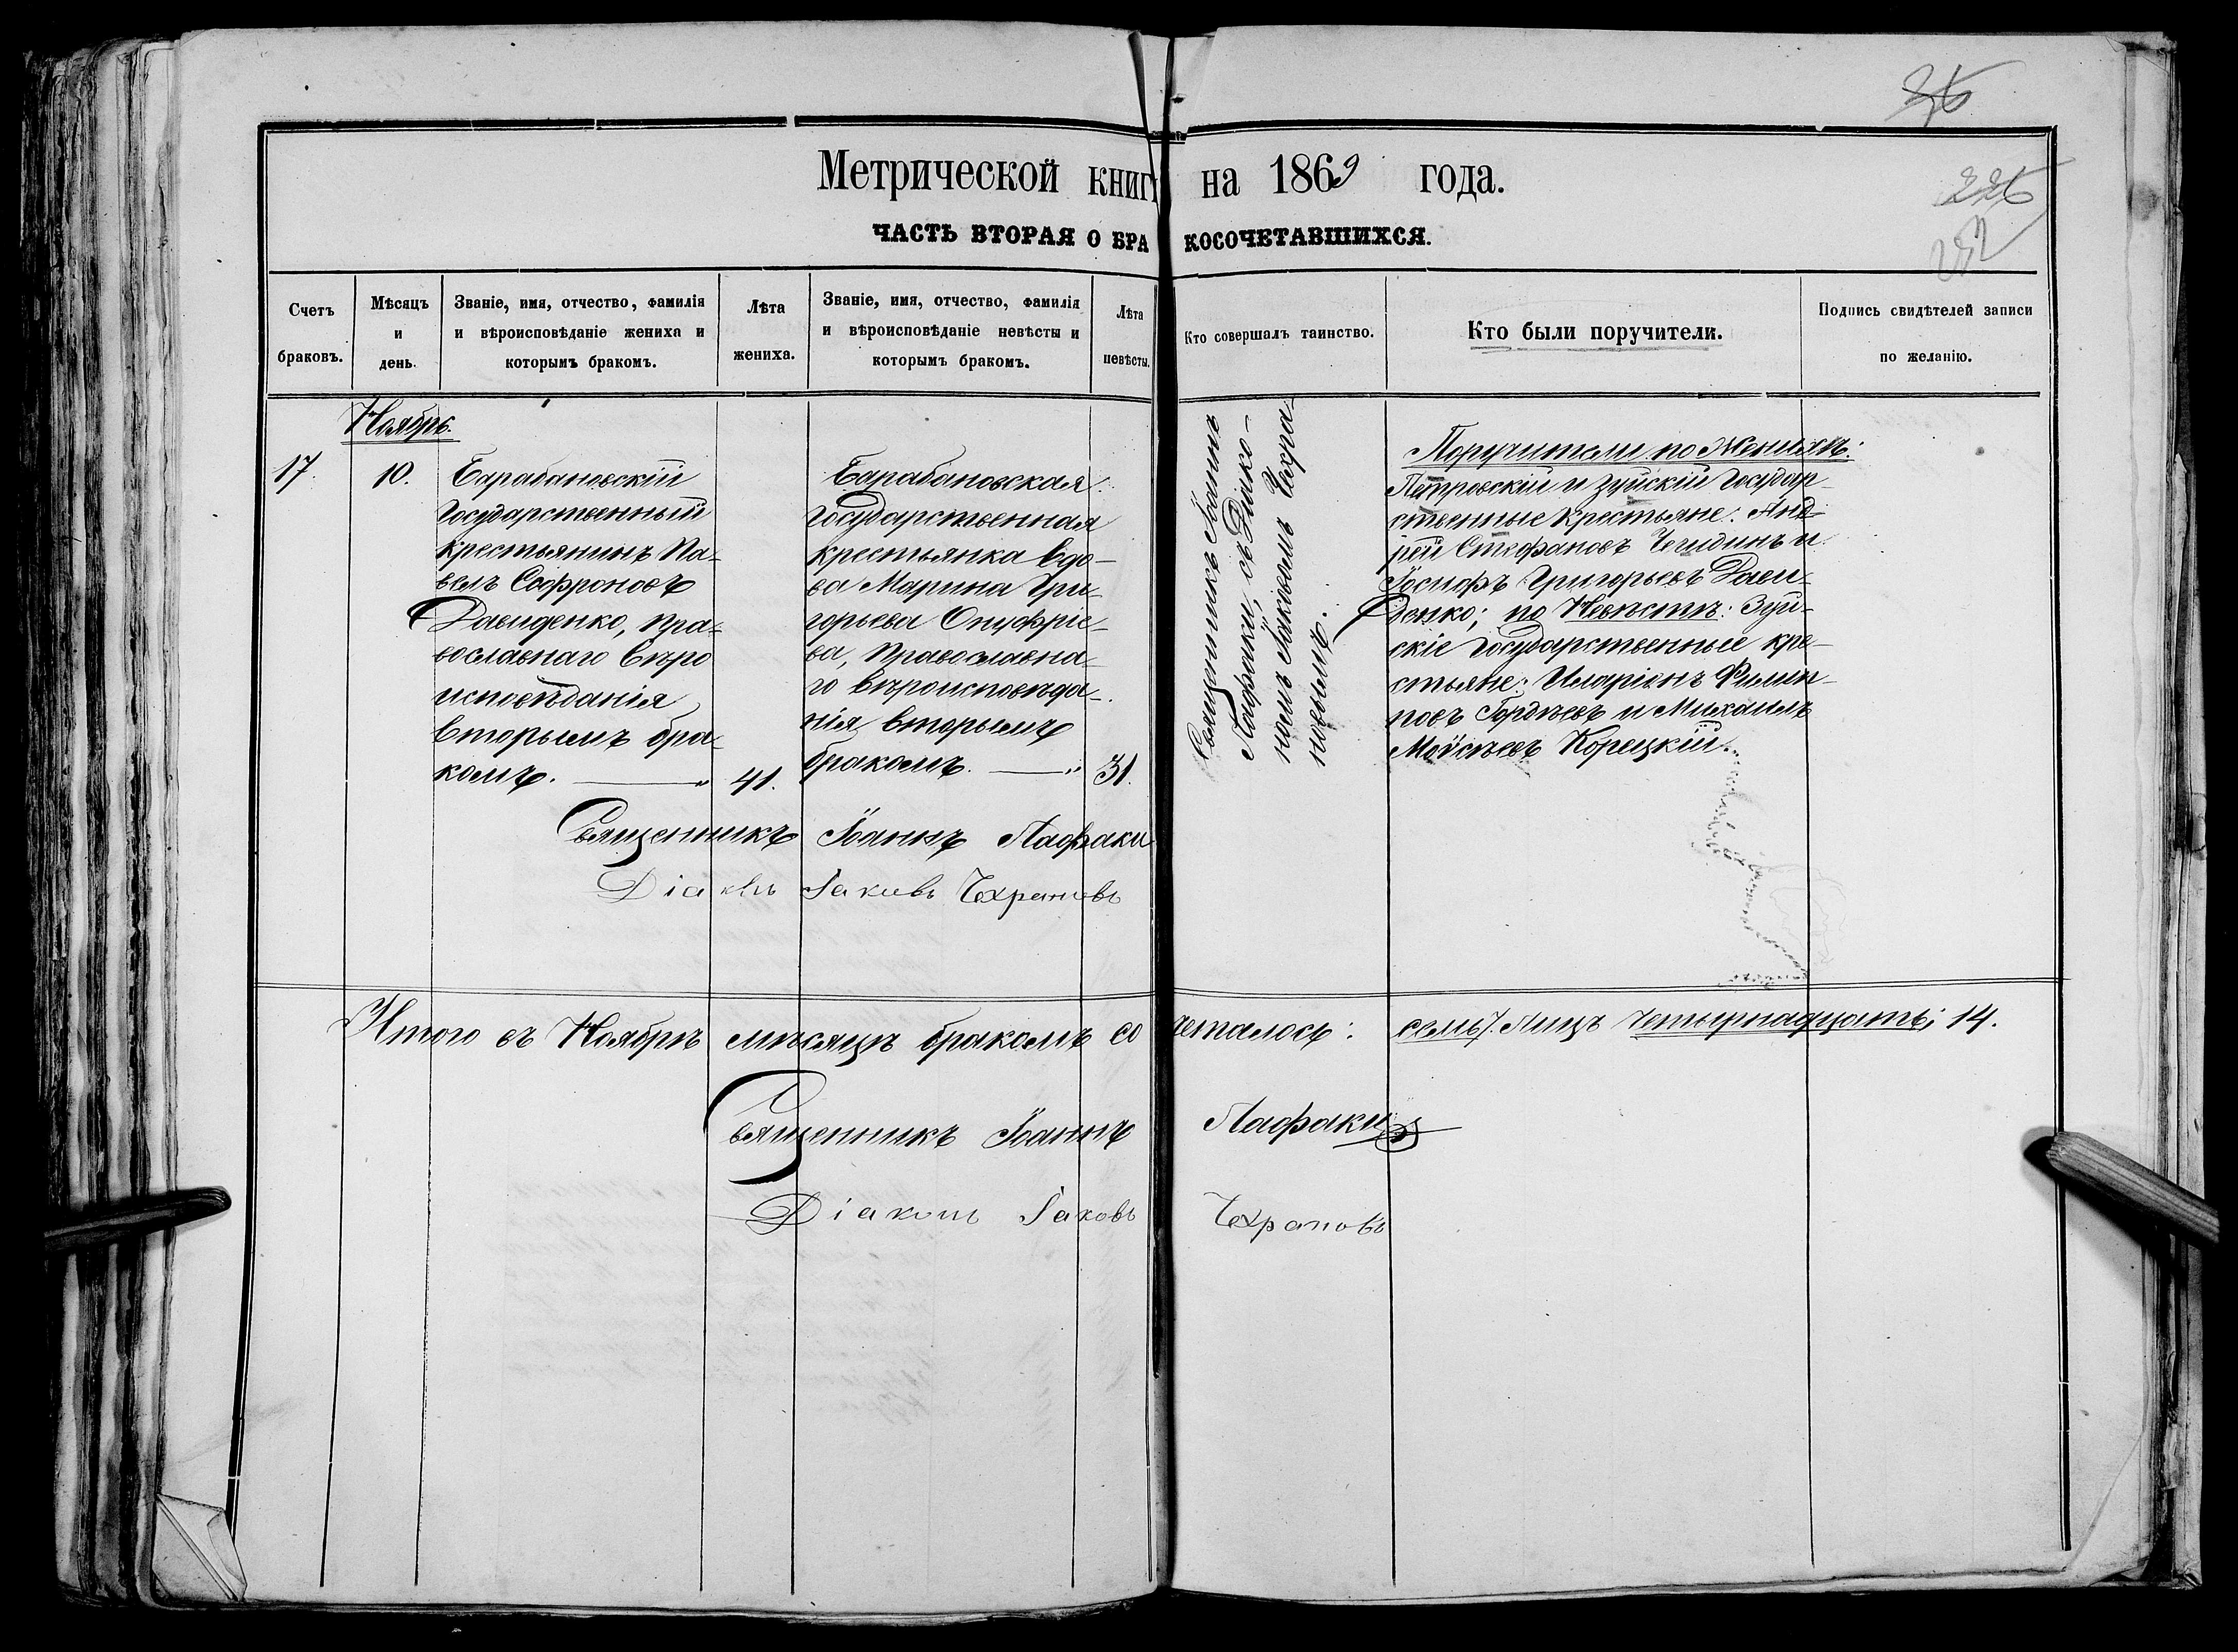 36
226
252
Метрической книг на 1869 года.
ЧАСТЬ ВТОРАЯ О БРАКОСОЧЕТАВШИХСЯ.
Счетъ
браковъ.
Мѣсяцъ
и
день.
Званіе, имя, отчество, фамилія
и вѣроисповѣданіе жениха и
которымъ бракомъ.
Лѣта
жениха.
Званіе, имя, отчество, фамилія
и вѣроисповѣданіе невѣсты и
которымъ бракомъ.
Лѣта
невѣсты.
Кто совершалъ таинство.
Кто были поручители.
Подпись свидѣтелей записи
по желанію.
Ноябрь.
17.
10.
Барабановскій
Государственный
крестьянинъ Па-
велъ Софроновъ
Давиденко, пра-
вославнаго веро
исповѣданія
вторымъ бра-
комъ.
41.
Барабановская
Государственная
крестьянка вдо-
ва Марина Гри-
горьева Онуфріе-
ва, православна-
го вѣроисповѣда-
нія вторымъ
бракомъ.
31.
Священникъ Іоаннъ
Лафаки, съ Діако-
номъ Іаковомъ Чехра-
новымъ.
Поручители по Женихѣ:
Петровскій и Зуйскій Государ-
ственные крестьяне: Анд-
рей Стефановъ Чегидинъ и
Іосифъ Григорьевъ Дави-
денко; по Невѣстѣ: Зуй-
скіе Государственные кре-
стьяне: Иларіонъ Филип-
повъ Гордѣевъ и Михаилъ
Моѵсѣевъ Корецкій.
Священникъ Іоаннъ Лафаки
Діаконъ Іаковъ Чехрановъ
Итого въ Ноябрѣ мѣсяцѣ бракомъ сочеталось: семь 7. Лицъ четырнадцать; 14.
Священникъ Іоаннъ Лафаки
Діаконъ Іаковъ Чехрановъ